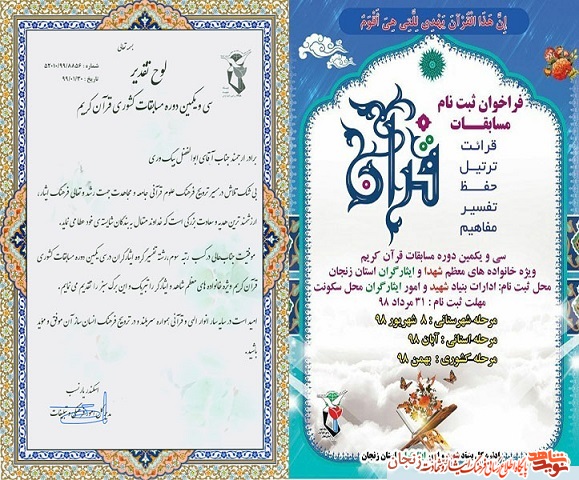 بسمه تعالی
شماره : ۵۲۰۱۰/۹۹/۸۸۵۶
تاریخ : ۹۹/۰۱/۳۰
لوح تقدیر
سی و یکمین دوره مسابقات کشوری قرآن کریم
برادر ارجمند جناب آقای ابوالفضل بیک وردی
بی شک تلاش در مسیر ترویج فرهنگ علوم قرآنی جامعه و مجاهدت جهت رشد و تعالی فرهنگ ایثار،
ارزشمندترین هدیه و سعادت بزرگی است که خداوند متعال به بندگان شایسته ی خود عطا می نماید.
موفقیت جنابعالی در کسب رتبه سوم رشته تفسیر گروه ایثارگران در سی و یکمین دوره مسابقات کشوری
قرآن کریم ویژه خانواده های معظم شاهد و ایثارگر را تبریک و این برگ سبز را تقدیم می نمایم.
امید است در سایه سار انوار الهی و قرآنی همواره سربلند و در ترویج فرهنگ انسان ساز آن موفق و مؤید
باشید.
إِنَّ هَذَا الْقُرْآنَ یَهْدِی لِلَّتِی هِیَ أَقْوَمُ
فراخوان ثبت نام
مسابقات
قرآن
قرائت
ترتیل
حفظ
تفسیر
مفاهیم
سی و یکمین دوره مسابقات قرآن کریم
ویژه خانواده های معظم شهدا و ایثارگران استان زنجان
محل ثبت نام: ادارات بنیاد شهید و امور ایثارگران محل سکونت
مهلت ثبت نام : ۳۱ مرداد ۹۸
مرحله شهرستانی : ۸ شهریور ۹۸
مرحله استانی : آبان ۹۸
مرحله کشوری : بهمن ۹۸
استان زنجان
نوید شاهد
پایگاه اطلاع رسانی فرهنگ ایثار و شهادت زنجان